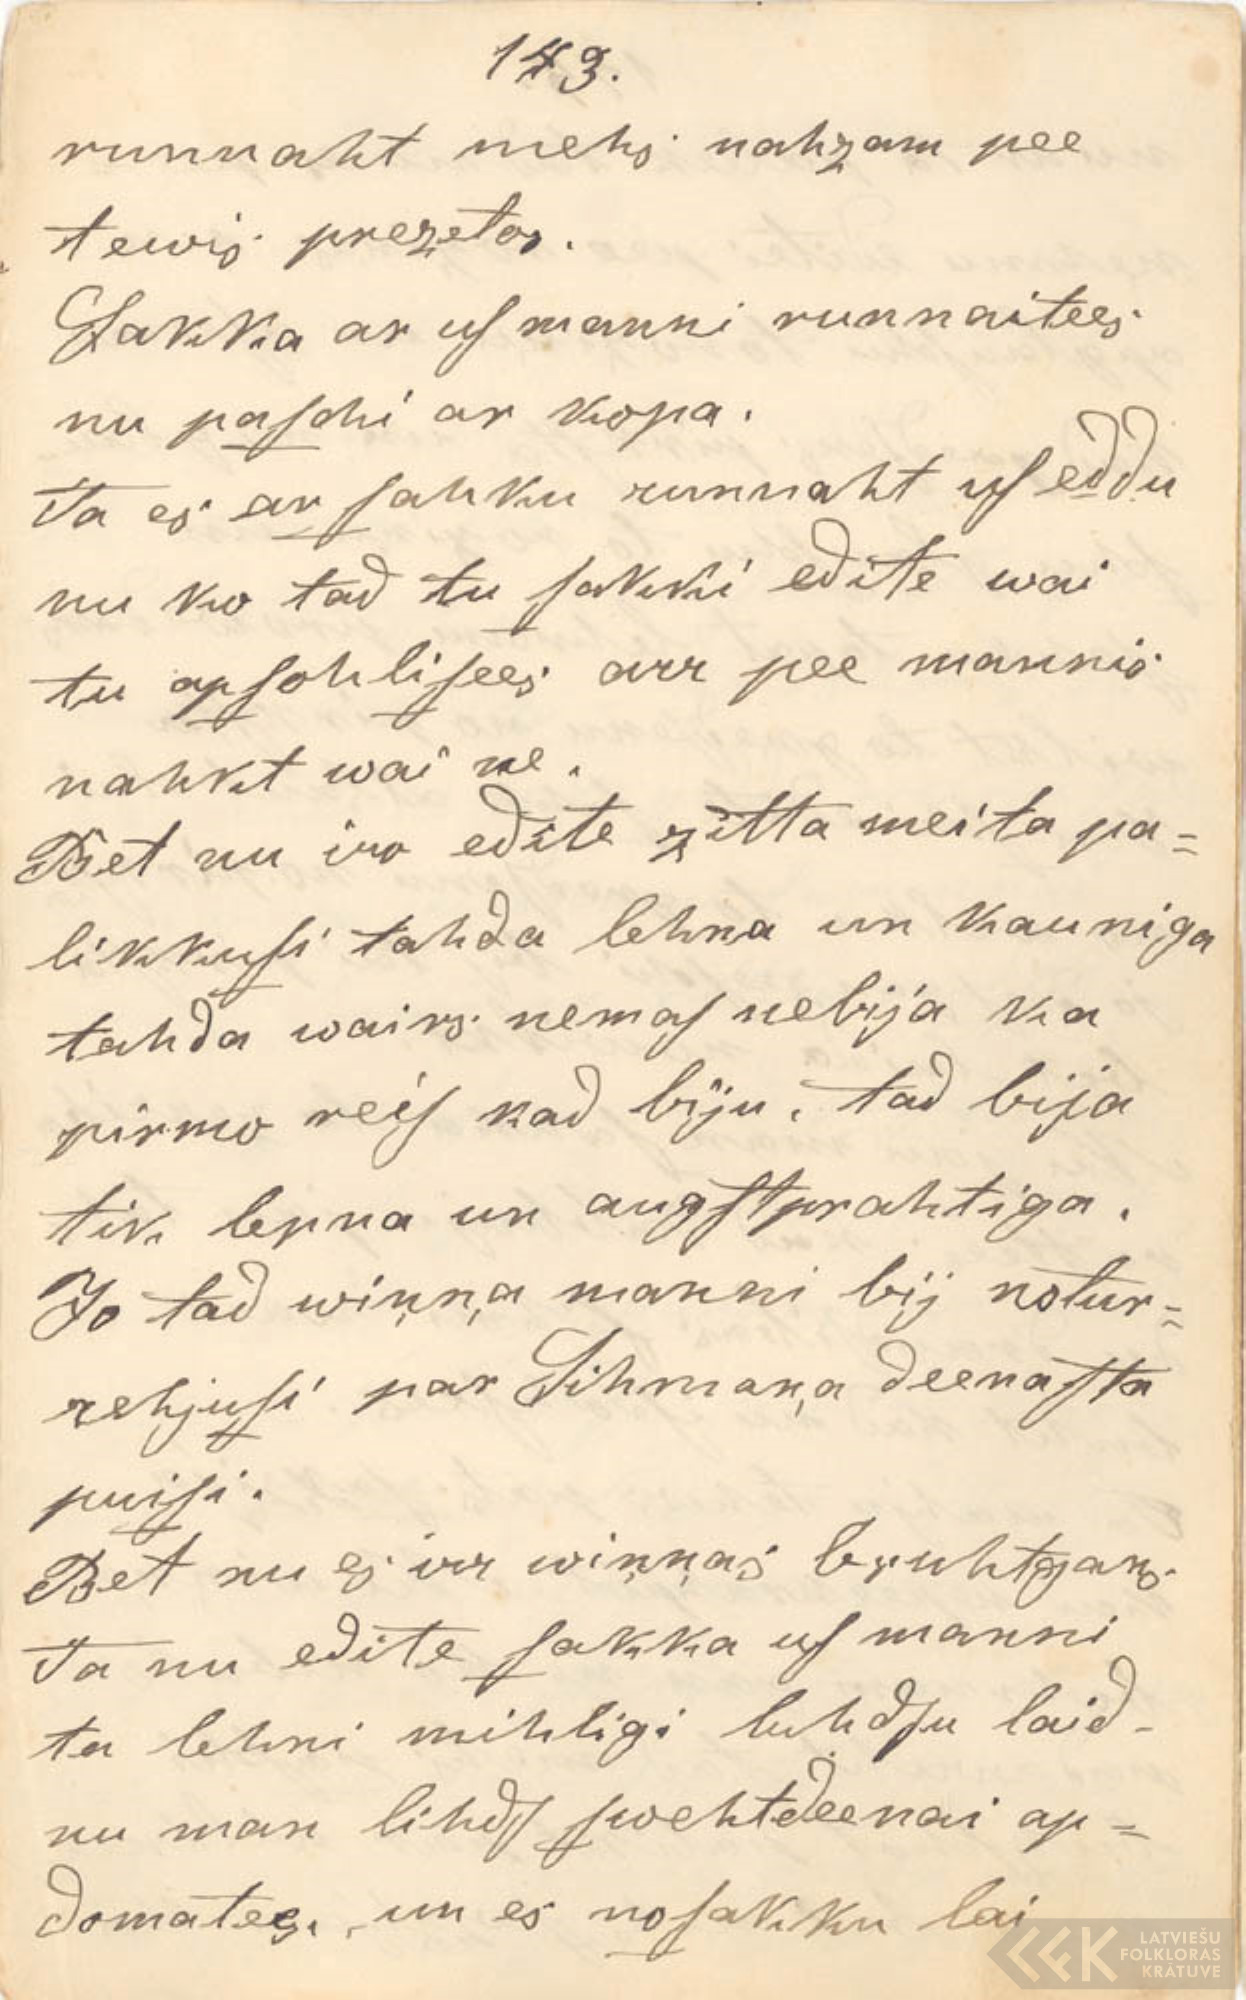 143.
runnaht mehs nahzam pee
tewis prezetos.
Sakka ar uſ manni runnaitees
nu paſchi ar kopa.
Ta es ar ſahku runnaht uſ eddu
nu ko tad tu ſakki edite wai
tu apſohliſees arr pee mannis
nahkt wai ne.
Bet nu iro edite zitta meita pa=
likkuſi tahda lehna un kauniga
tahda wairs nemaſ nebija ka
pirmo reiſ kad biju. tad bija
tik lepna un augſtprahtiga.
Jo tad wiņņa manni bij notur=
rehjuſi par Sihmaņa deenaſta
puiſi.
Bet nu es irr wiņņas bruhtgans.
Ta nu edite ſakka uſ manni
ta lehni mihligi luhdſu laid-
nu man lihdſ ſwehtdeenai ap=
domatees. un es noſakku lai
LATVIEŠU
FOLKLORAS
KRĀTUVE